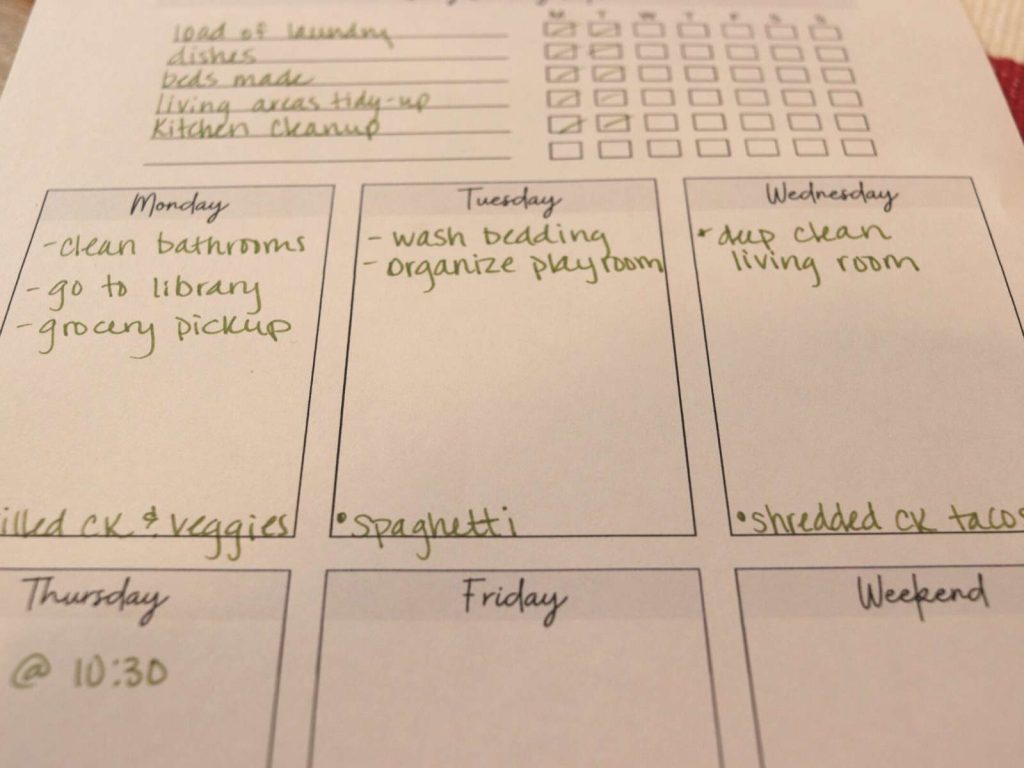 M T W T F S S
load of laundry
dishes
beds made
living areas tidy-up
kitchen cleanup
Monday
- clean bathrooms
- go to library
- grocery pickup
illed ck & veggies
Tuesday
- wash bedding
- organize playroom
• spaghetti
Wednesday
• deep clean
living room
• shredded ck tacos
Thursday
@ 10:30
Friday
Weekend